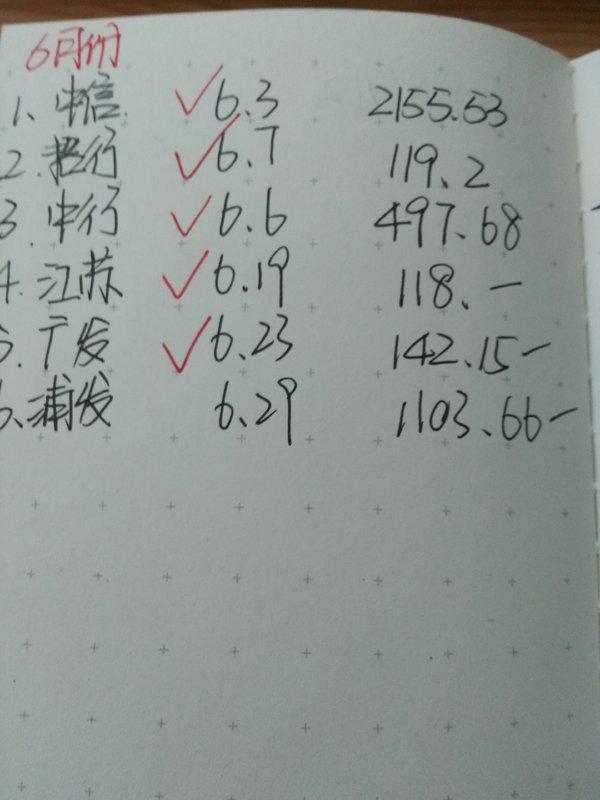 6月份
1、中信 ✓6.3 2155.53
2.招行 ✓6.7 119.2
3.中行 ✓6.6 497.68
4.江苏 ✓6.19 118.—
5.广发 ✓6.23 142.15—
6.浦发 6.29 1103.66—